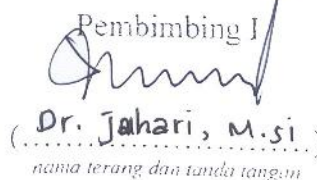 Pembimbing I
(Dr. Jahari, M.si)
nama terang dan tanda tangan